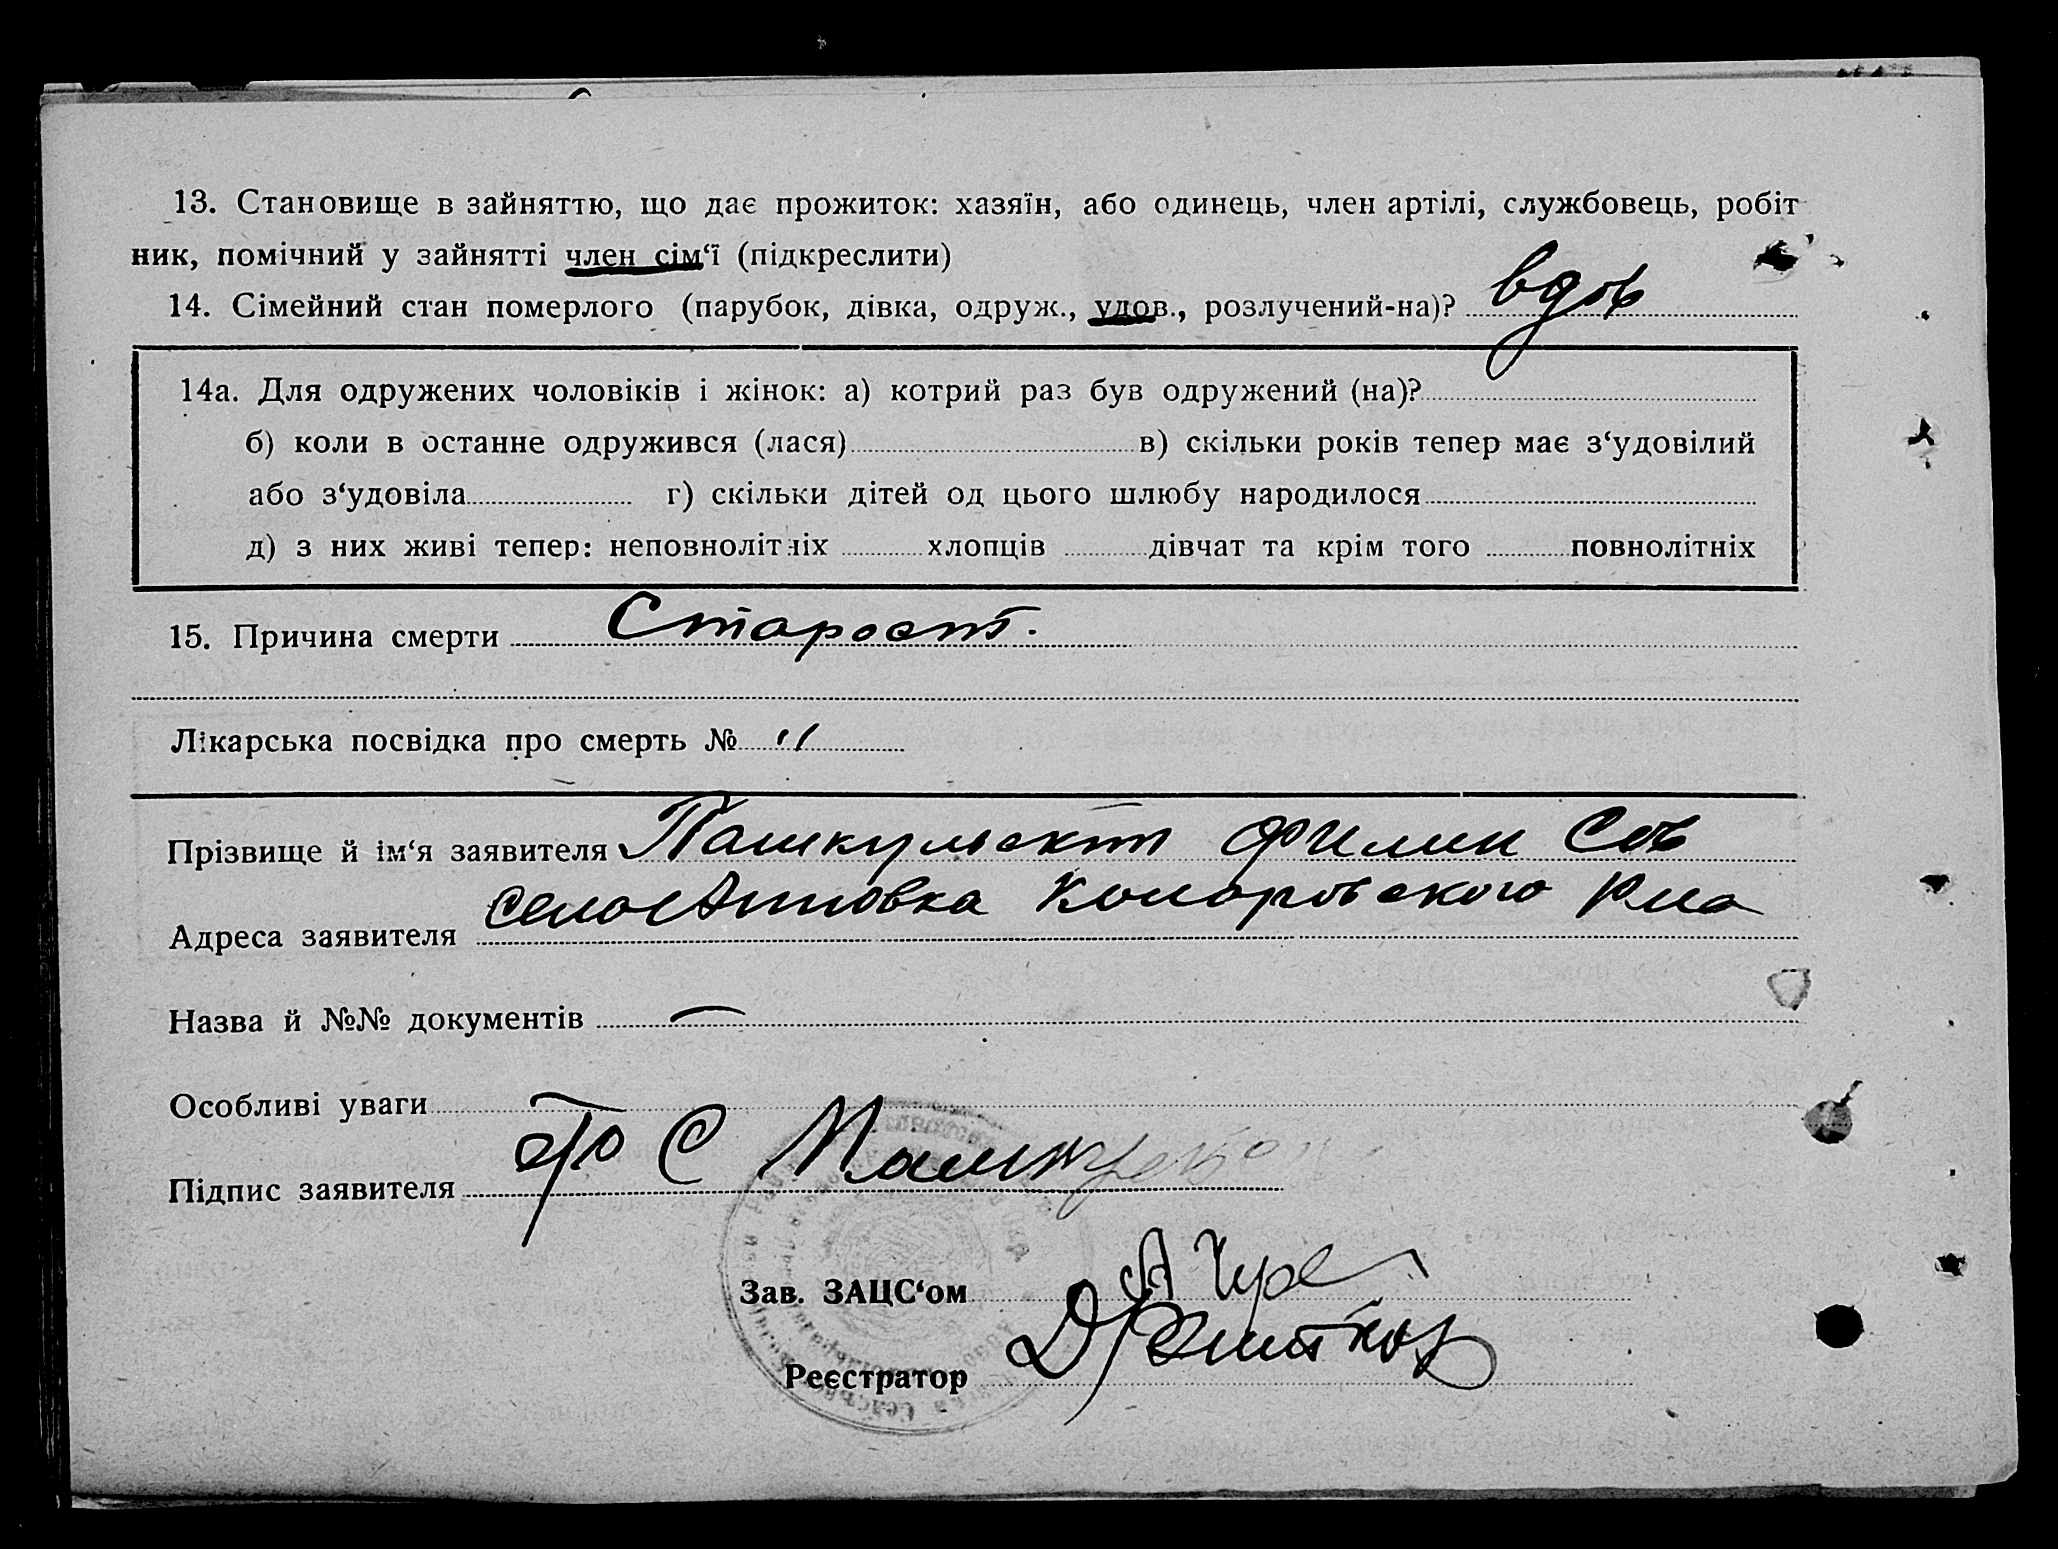 13. Становище в зайняттю, що дає прожиток: хазяїн, або одинець, член артілі, службовець, робіт
ник, помічний у зайнятті член сім‘ї (підкреслити)
14. Сімейний стан померлого (парубок, дівка, одруж., удов., розлучений-на)? вдов
14а. Для одружених чоловіків і жінок: а) котрий раз був одружений (на)?
б) коли в останне одружився (лася) в) скільки років тепер має з‘удовілий
або з‘удовіла г) скільки дітей од цього шлюбу народилося
д) з них живі тепер: неповнолітніх хлопців дівчат та крім того повнолітніх
15. Причина смерти Старост.
Лікарська посвідка про смерть №
Прізвище й ім‘я заявителя Филип
Адреса заявителя село
Назва й №№ документів
Особливі уваги
Підпис заявителя
Зав. ЗАЦС‘ом
Реєстратор